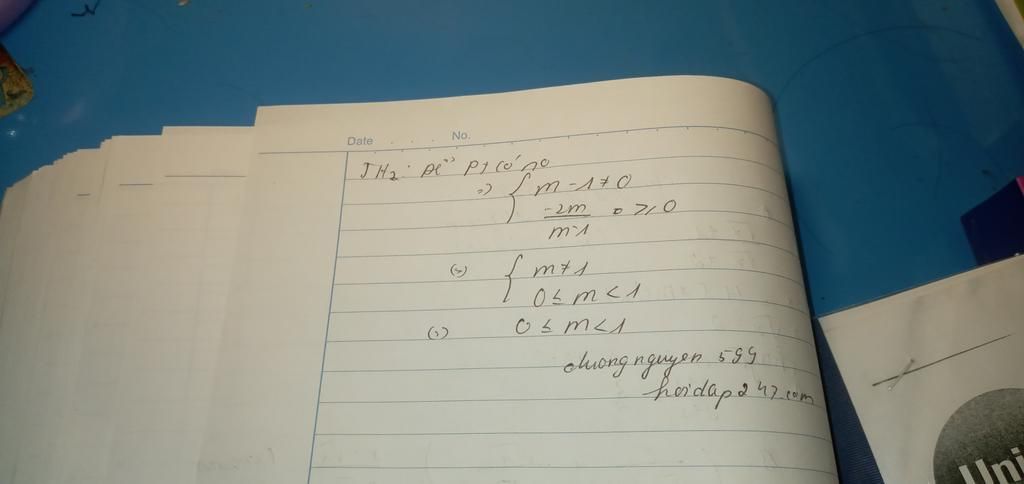 Date No.
TH2: Để pt có no
=> { m - 1 ≠ 0
-2m / m-1 ≥ 0
(=) { m ≠ 1
0 ≤ m < 1
(=) 0 ≤ m < 1
duongnguyen 599
hoidap247.com
Uni